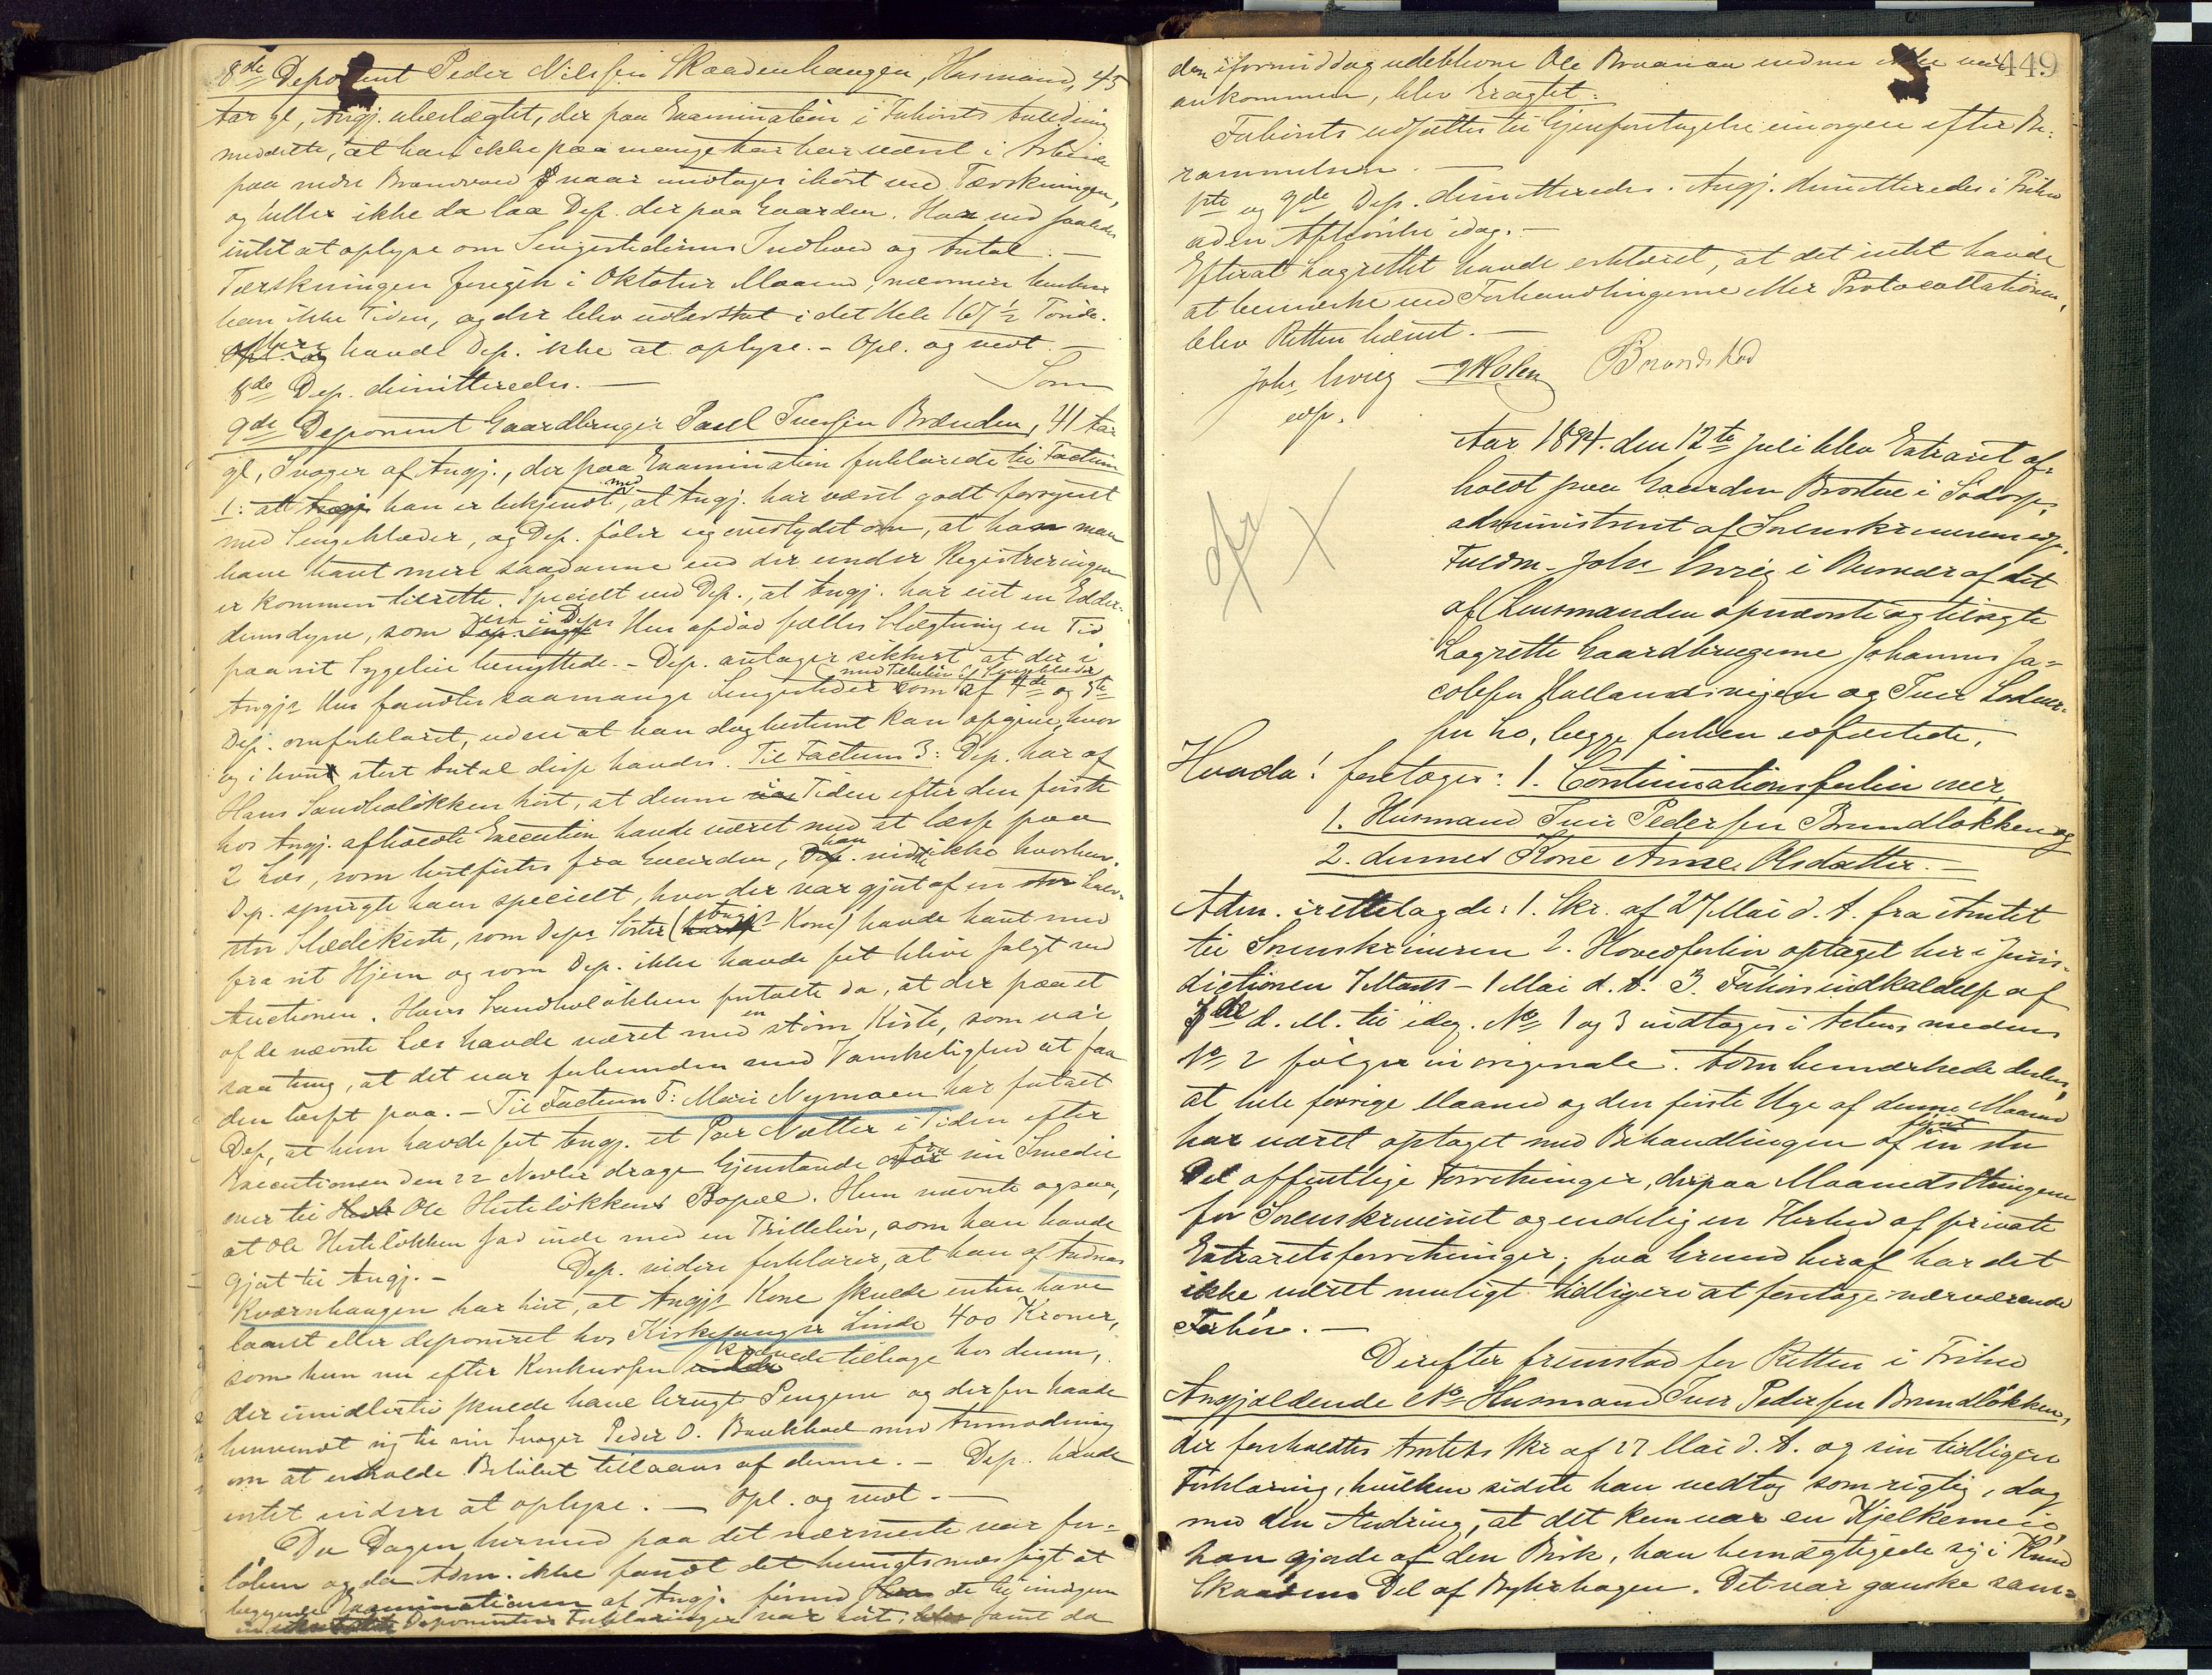 8de Deponent Peder Nilssen Skaadenhaugen, Husmand, 45
Aar gl, Angj. ubeslægtet, der paa Examination i Forhørets Anledning
meddelte, at han ikke paa mange Aar har været i Arbeide
paa nedre Brandvold naar undtages ihøst ved Tærskningen,
og heller ikke da laa Dep. der paa Gaarden. Har ved saaledes
intet at oplyse om Sengestedernes Indhold og Antal. —
Tærskningen foregik i Oktober Maaned, nærmere husker
han ikke Tiden, og der blev udtærsket i det Hele 167 1/2 Tønde.
havde Dep. ikke at oplyse. - Opl. og vedt. —
8de Dep. dimitteredes. — Som
9de Deponent Gaardbruger Paul Iversen Brænden, 41 Aar
gl, Svoger af Angj., der paa Examination forklarede til Factum
1: at han er bekjendt med, at Angj. har været godt forsynet
med Sengeklæder, og Dep. føler sig overtydet om, at han maa
have havt mere saadanne end der under Registreringen
er kommen tilrette. Specielt ved Dep., at Angj. har eiet en Edder-
dunsdyne, som en i Deps Hus afdød fælles Slægtning en Tid
paa sit Sygeleie benyttede. - Dep. antager sikkert at der i
Angjs Hus fandtes saamange Sengesteder med Tilbehør af Sengeklæder som af 4de og 5te
Dep. omforklaret, uden at han dog bestemt kan opgive, hvor
og i hvilket stort Antal disse havdes. Til Factum 3: Dep. har af
Hans Sandboløkken hørt, at denne Tiden efter den første
hos Angj. afholdte Execution havde været med at læsse paa
2 Læs, som bortførtes fra Gaarden, han vidste ikke hvorhen.
Dep. spurgte ham specielt, hvor der var gjort af en stor
stor Klædekiste, som Deps Søster (Angjs Kone) havde havt med
fra sit Hjem og som Dep. ikke havde set blive solgt ved
Auctionen. Hans Sandboløkken fortalte da, at der paa et
af de nævnte Læs havde været med en større Kiste, som var
saa tung, at det var forbunden med Vanskelighed at faa
den læsset paa. - Til Factum 5: Mari Nymoen har fortalt
Dep, at hun havde set Angj. et Par Nætter i Tiden efter
Executionen den 22 Novbr drage Gjenstande fra sin Smedie
over til Ole Hesteløkkens Bopæl. Hun nævnte ogsaa,
at Ole Hesteløkken sad inde med en Trillebør, som han havde
gjort til Angj. - Dep. videre forklarer, at han af Andreas
Kværnhaugen har hørt, at Angjs Kone skulde enten have
laant eller deponeret hos Kirkesanger Linde 400 Kroner,
som hun nu efter Konkursen krævede tilbage hos denne,
der imidlertid skulde have brugt Pengene og derfor havde
henvendt sig til sin Svoger Peder O. Baukhol med Anmodning
om at erholde Beløbet tillaans af denne. - Dep. havde
intet videre at oplyse. — Opl. og vedt. —
Da Dagen hermed paa det nærmeste var for-
løben og da Adm. ikke fandt det hensigtsmæssigt at
begynde Examinationen af Angj. førend de til imorgen
Deponenters Forklaringer var hørt, samt da
449
den iformiddag udeblevne Ole Braanaa endnu ikke var
ankommen, blev Eragtet:
Forhøret udsættes til Gjenforetagelse imorgen efter Be-
rammelsen. —
1ste og 9de Dep. dimitteredes. Angj. dimitteredes i Frihed
uden Afhørelse idag. —
Efterat Lagrettet havde erklæret, at det intet havde
at bemærke ved Forhandlingerne eller Protocollationen,
blev Retten hævet. —
Johs Grieg Holen Brandstad
edsv.
Aar 1894. den 12te Juli blev Extraret af-
holdt paa Gaarden Brostue i Sødorp,
administreret af Sorenskriverens eds.
Fuldm. Johs Grieg i Overvær af det
af Lensmanden opnævnte og tilsagte
Lagrette Gaardbrugerne Johannes Ja-
cobsen Hallandsvigen og Iver
Lo, begge forhen edfæstede.
Hvorda! foretages: 1. Continuationsforhør over
1. Husmand Iver Pedersen Brundløkken og
2. dennes Kone Anne Olsdatter. —
Adm. irettelagde: 1. Skr. af 27 Mai d. A. fra Amtet
til Sorenskriveren 2. Hovedforhør optaget her i Juris-
dictionen 7 Marts - 1 Mai d. A. 3. Forhørsindkaldelse af
7de d. M. til idag. No 1 og 3 indtages i Acten medens
No 2 følger in originale. Adm bemærkede derhos,
at hele forrige Maaned og den første Uge af denne Maaned
har været optaget med Behandlingen af først en stor
Del offentlige Forretninger, derpaa Maanedsthingene
for Sorenskriveriet og endelig en Herhed af private
Extraretsforretninger; paa Grund heraf har det
ikke været muligt tidligere at foretage nærværende
Forhør. —
Derefter fremstod for Retten i Frihed
Angjældende No Husmand Iver Pedersen Brundløkken,
der foreholdtes Amtets Skr af 27 Mai d. A. og sin tidligere
Forklaring, hvilken sidste han vedtog som rigtig, dog
med den Ændring, at det kun var en Kjelkemeie,
han gjorde af den Birk, han bemægtigede sig i Knud
Skaadens Del af Byrhagen. Det var ganske sam-